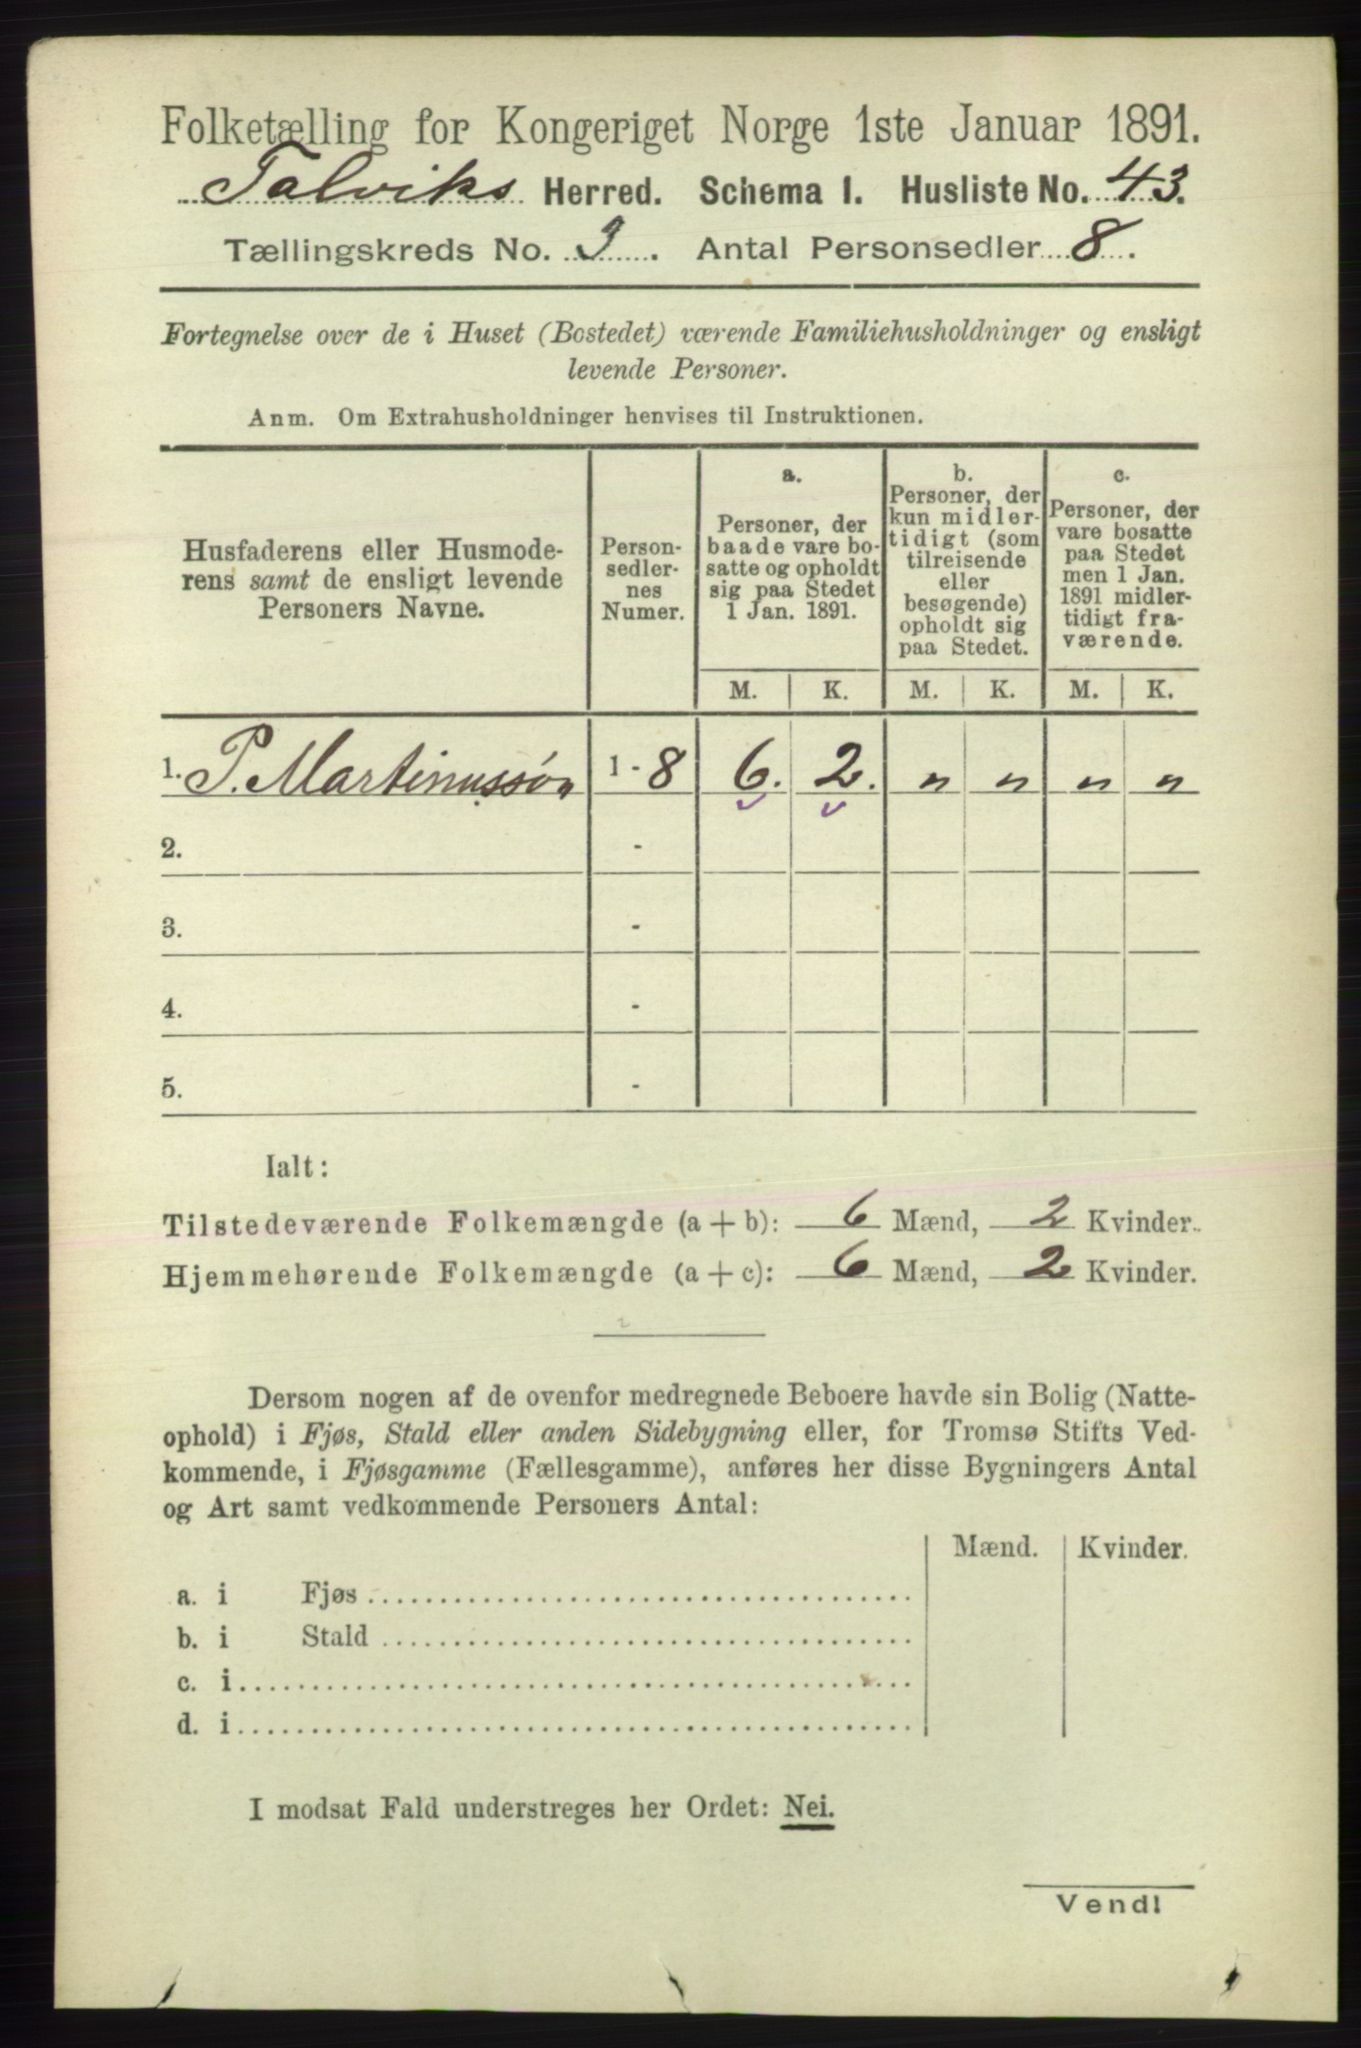 Folketælling for Kongeriget Norge 1ste Januar 1891.
Talviks Herred. Schema I. Husliste No. 43.
Tællingskreds No. . Antal Personsedler 8.
Fortegnelse over de i Huset (Bostedet) værende Familiehusholdninger og ensligt
levende Personer.
Anm. Om Extrahusholdninger henvises til Instruktionen.
Husfaderens eller Husmode-
rens samt de ensligt levende
Personers Navne.
Person-
sedler-
nes
Numer.
a.
Personer, der
baade vare bo-
satte og opholdt
sig paa Stedet
1 Jan. 1891.
b.
Personer, der
kun midler-
tidigt (som
tilreisende
eller
besøgende)
opholdt sig
paa Stedet.
c.
Personer, der
vare bosatte
paa Stedet
men 1 Jan.
1891 midler-
tidigt fra-
værende.
M. K. M. K. M. K.
1. P. Martinussøn 1 - 8 6. 2. " " " "
2. -
3. -
4. -
5. -
Ialt:
Tilstedeværende Folkemængde (a + b): 6 Mænd, 2 Kvinder.
Hjemmehørende Folkemængde (a + c): 6 Mænd, 2 Kvinder.
Dersom nogen af de ovenfor medregnede Beboere havde sin Bolig (Natte-
ophold) i Fjøs, Stald eller anden Sidebygning eller, for Tromsø Stifts Ved-
kommende, i Fjøsgamme (Fællesgamme), anføres her disse Bygningers Antal
og Art samt vedkommende Personers Antal:
Mænd. Kvinder.
a. i Fjøs
b. i Stald
c. i
d. i
I modsat Fald understreges her Ordet: Nei.
Vend!